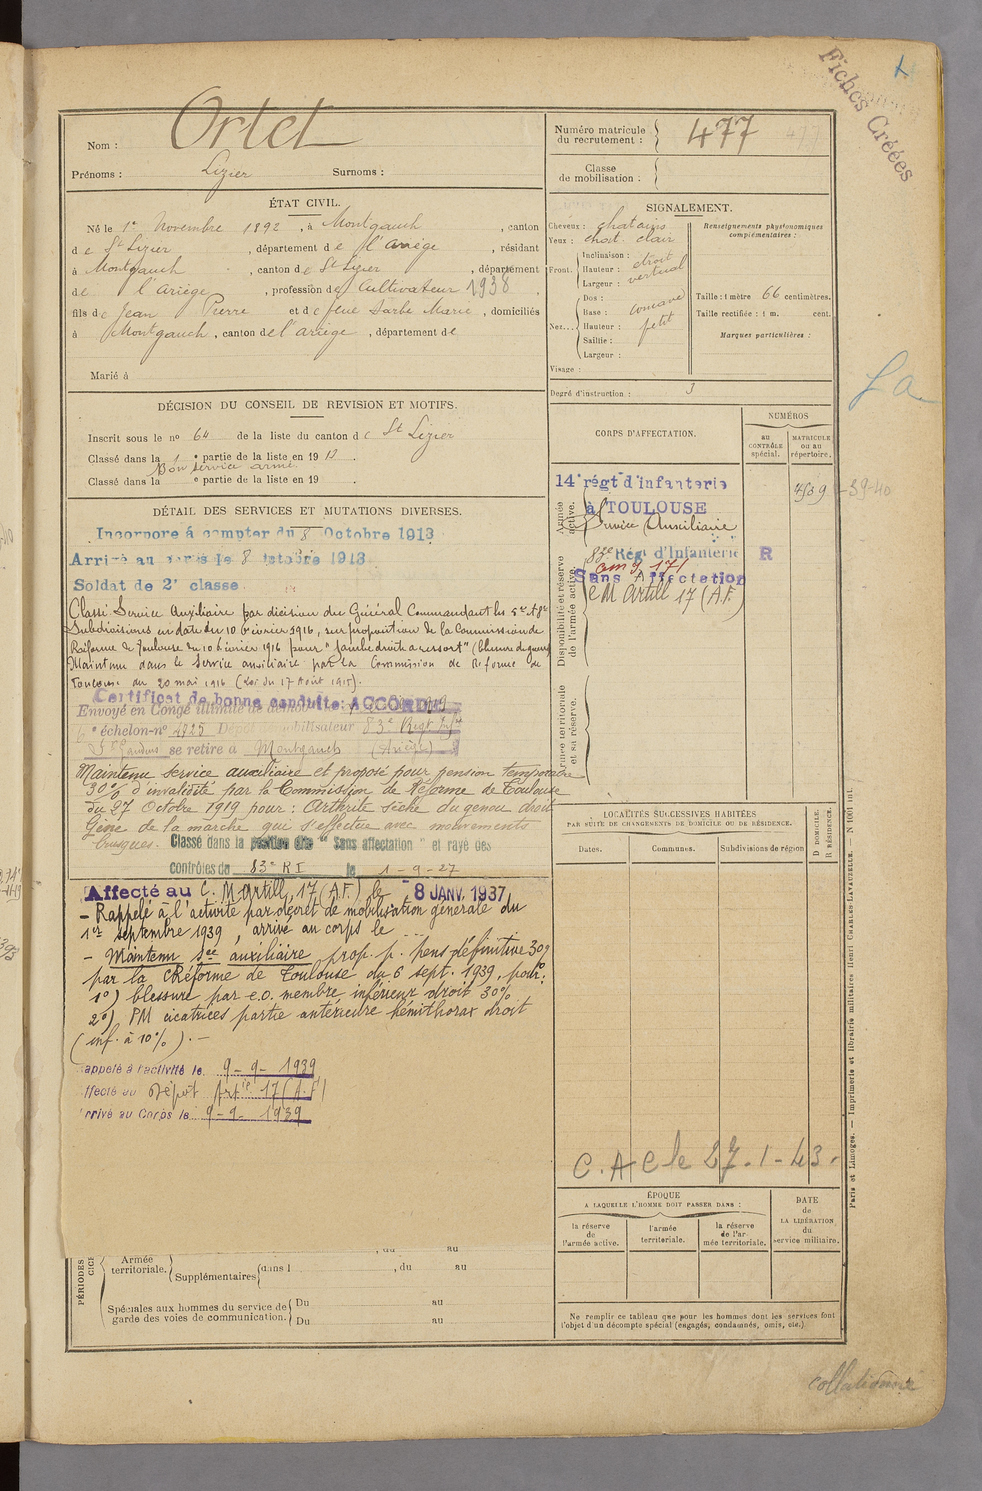 Fiches Créées
Nom : Ortet
Prénoms : Lizier Surnoms :
Numéro matricule du recrutement : 477
Classe de mobilisation :
ÉTAT CIVIL.
Né le 1er Novembre 1892, à Montgauch, canton
de St Lizier, département de l'Ariège, résidant
à Montgauch, canton de St Lizier, département
de l'Ariège, profession de Cultivateur 1938,
fils de Jean Pierre et de feue Marie, domiciliés
à Montgauch, canton de l'ariège, département de
Marié à
SIGNALEMENT.
Cheveux : chatains
Yeux : chat. clair
Front. Inclinaison : droit
Hauteur : vertical
Largeur :
Nez... Dos :
Base : concave
Hauteur : petit
Saillie :
Largeur :
Visage :
Renseignements physionomiques complémentaires :
Taille : 1 mètre 66 centimètres.
Taille rectifiée : 1 m. cent.
Marques particulières :
Degré d'instruction : 3
DÉCISION DU CONSEIL DE REVISION ET MOTIFS.
Inscrit sous le no 64 de la liste du canton de St Lizier
Classé dans la 1e partie de la liste en 1913.
Bon service armé
Classé dans la e partie de la liste en 19 .
DÉTAIL DES SERVICES ET MUTATIONS DIVERSES.
Incorporé á compter du 8 Octobre 1913
Arrivé au corps le 8 Octobre 1913.
Soldat de 2e classe
Classé Service Auxiliaire par décision du Général Commandant les
Subdivisions en date du 10 février 1916, sur proposition de la Commission de
Réforme de Toulouse du 10 février 1916 pour "jambe droite à ressort" (blessure de guerre)
Maintenu dans le Service auxiliaire par la Commission de Réforme de
Toulouse du 20 mai 1916 (Loi du 17 Août 1915).
Certificat de bonne conduite: ACCORDÉ
Envoyé en Congé illimité de
échelon-no 4925 Dépôt démobilisateur 83e Régt Infie
se retire à Montgauch (Ariège)
Maintenu service auxiliaire et proposé pour pension temporaire
30% d'invalidité par la Commission de Réforme de Toulouse
du 27 Octobre 1919 pour : Arthrite sèche du genou droit
Gêne de la marche qui s'effectue avec mouvements
brusques. Classé dans la position dite "Sans affectation" et rayé des
contrôles du 83e RI le 1-9-27
Affecté au C. M Artill. 17 (A.F.) le 8 JANV. 1937
- Rappelé à l'activité par décret de mobilisation générale du
1er septembre 1939, arrivé au corps le ...
- Maintenu sce auxiliaire prop. p. pens définitive 30%
par la C Réforme de Toulouse du 6 sept. 1939. pour :
1°) blessure par e.o. membre inférieur droit 30%
2°) PM cicatrices partie antérieure hémithorax droit
(inf. à 10%). -
appelé à l'activité le 9-9-1939
ffecté au Dépôt Artie 17 (A.F)
rrivé au Corps le 9-9-1939
CORPS D'AFFECTATION.
NUMÉROS
au CONTRÔLE spécial.
MATRICULE ou au répertoire.
Armée active.
14e régt d'infanterie
à TOULOUSE
Service Auxiliaire
39-40
Disponibilité et réserve de l'armée active.
83e Régt d'Infanterie R
Sans Affectation
C M Artill 17 (A.F.)
Armée territoriale et sa réserve.
LOCALITÉS SUCCESSIVES HABITÉES
PAR SUITE DE CHANGEMENTS DE DOMICILE OU DE RÉSIDENCE.
Dates.
Communes.
Subdivisions de région
D DOMICILE.
R RÉSIDENCE.
C.A C le 27.1-43.
ÉPOQUE
A LAQUELLE L'HOMME DOIT PASSER DANS :
la réserve de l'armée active.
l'armée territoriale.
la réserve de l'armée territoriale.
DATE de LA LIBÉRATION du service militaire.
PÉRIODES
Armée territoriale.
Supplémentaires dans l , du au
Spéciales aux hommes du service de garde des voies de communication.
Du au
Du au
Ne remplir ce tableau que pour les hommes dont les services font
l'objet d'un décompte spécial (engagés, condamnés, omis, etc.).
Paris et Limoges. — Imprimerie et librairie militaires Henri CHARLES-LAVAUZELLE. — N 1001 int.
collationné